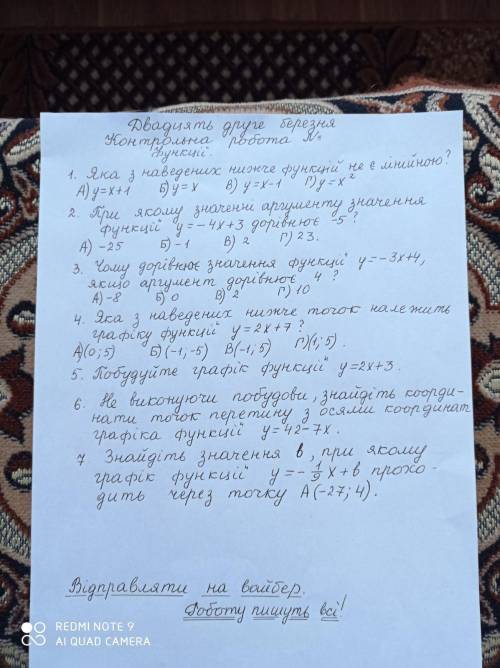 Двадцять друге березня
Контрольна робота №
Функції.
1. Яка з наведених нижче функцій не є лінійною?
А) y=x+1 Б) y=x В) y=x-1 Г) y=x²
2. При якому значенні аргументу значення
функції y=-4x+3 дорівнює -5?
А) -25 Б) -1 В) 2 Г) 23.
3. Чому дорівнює значення функції y=-3x+4,
якщо аргумент дорівнює 4?
А) -8 Б) 0 В) 2 Г) 10
4. Яка з наведених нижче точок належить
графіку функції y=2x+7?
А) (0; 5) Б) (-1; -5) В) (-1; 5) Г) (1; 5).
5. Побудуйте графік функції y=2x+3.
6. Не виконуючи побудови, знайдіть коорди-
нати точок перетину з осями координат
графіка функції y=42-7x.
7 Знайдіть значення в, при якому
графік функції y=-1/9x+в прохо-
дить через точку А(-27; 4).
Відправляти на вайбер.
Роботу пишуть всі!
REDMI NOTE 9
AI QUAD CAMERA